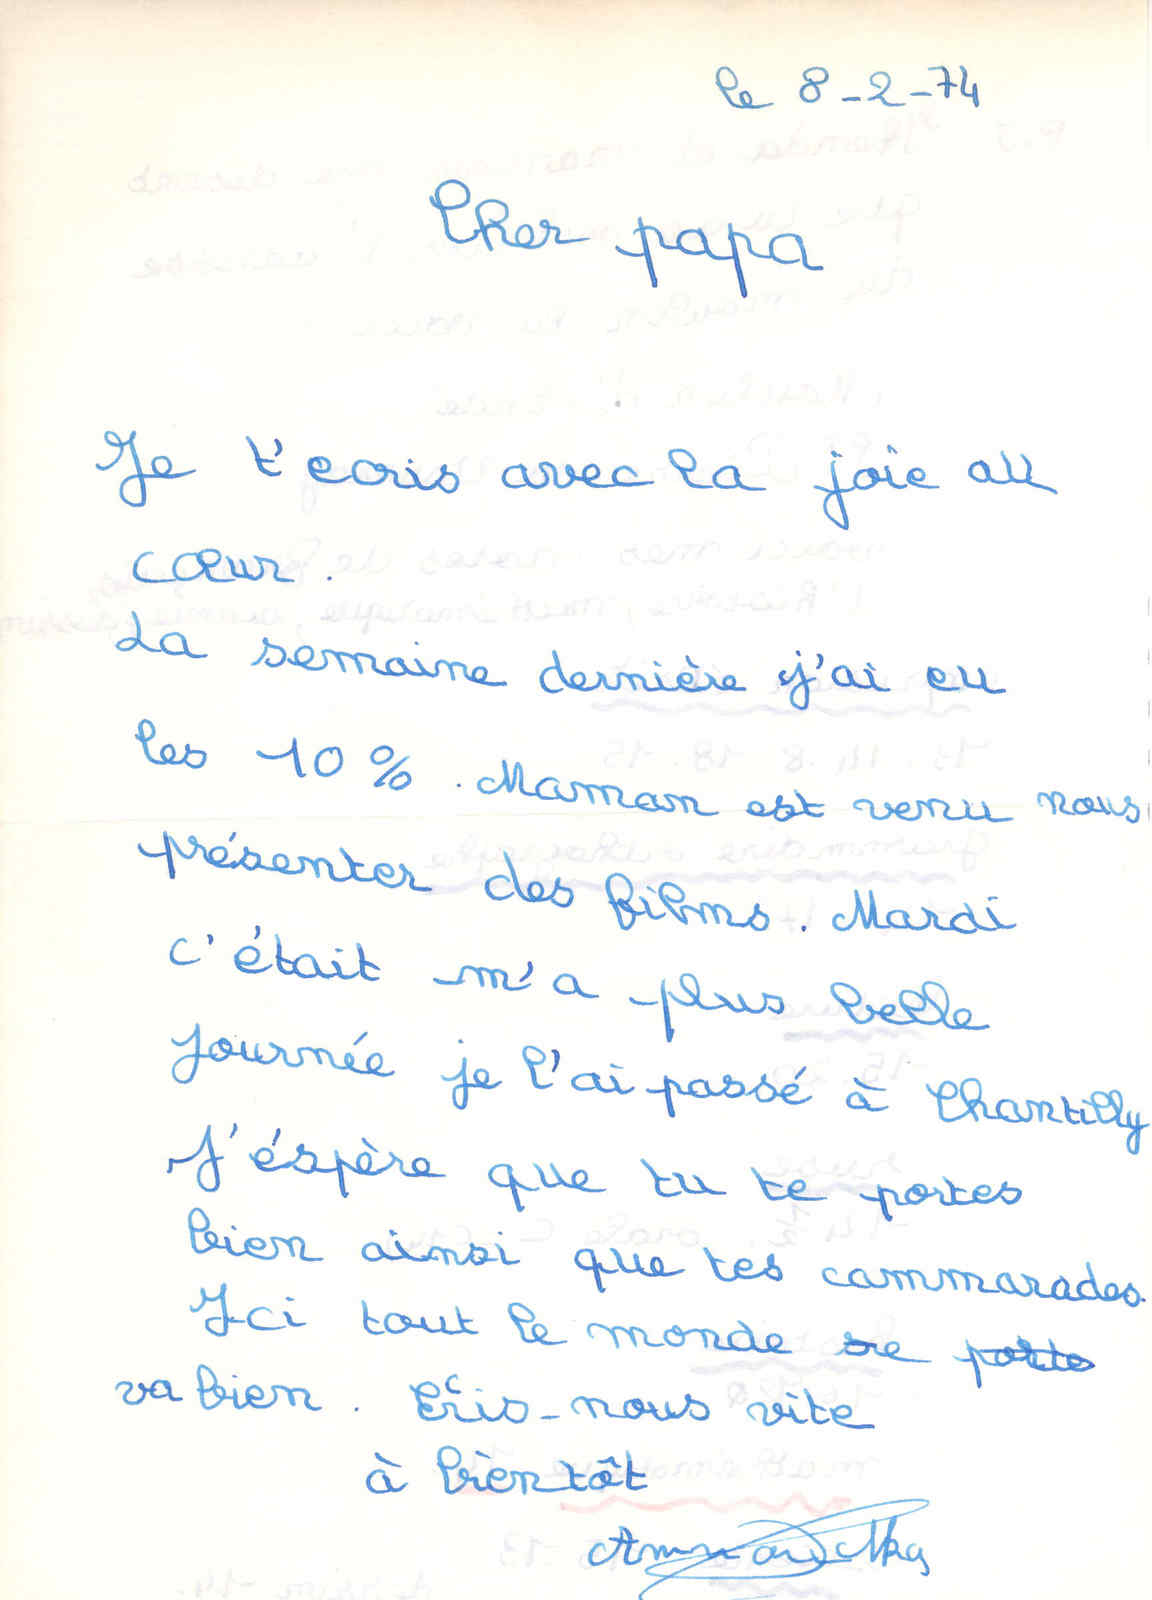 le 8-2-74
Cher papa
Je t'ecris avec la joie au
cœur.
La semaine dernière j'ai eu
les 10%. Maman est venu nous
présenter des films. Mardi
c'était m'a plus belle
journée je l'ai passé à Chantilly
J'éspère que tu te portes
bien ainsi que tes cammarades.
Ici tout le monde se porte
va bien. Ecris-nous vite
à bientôt